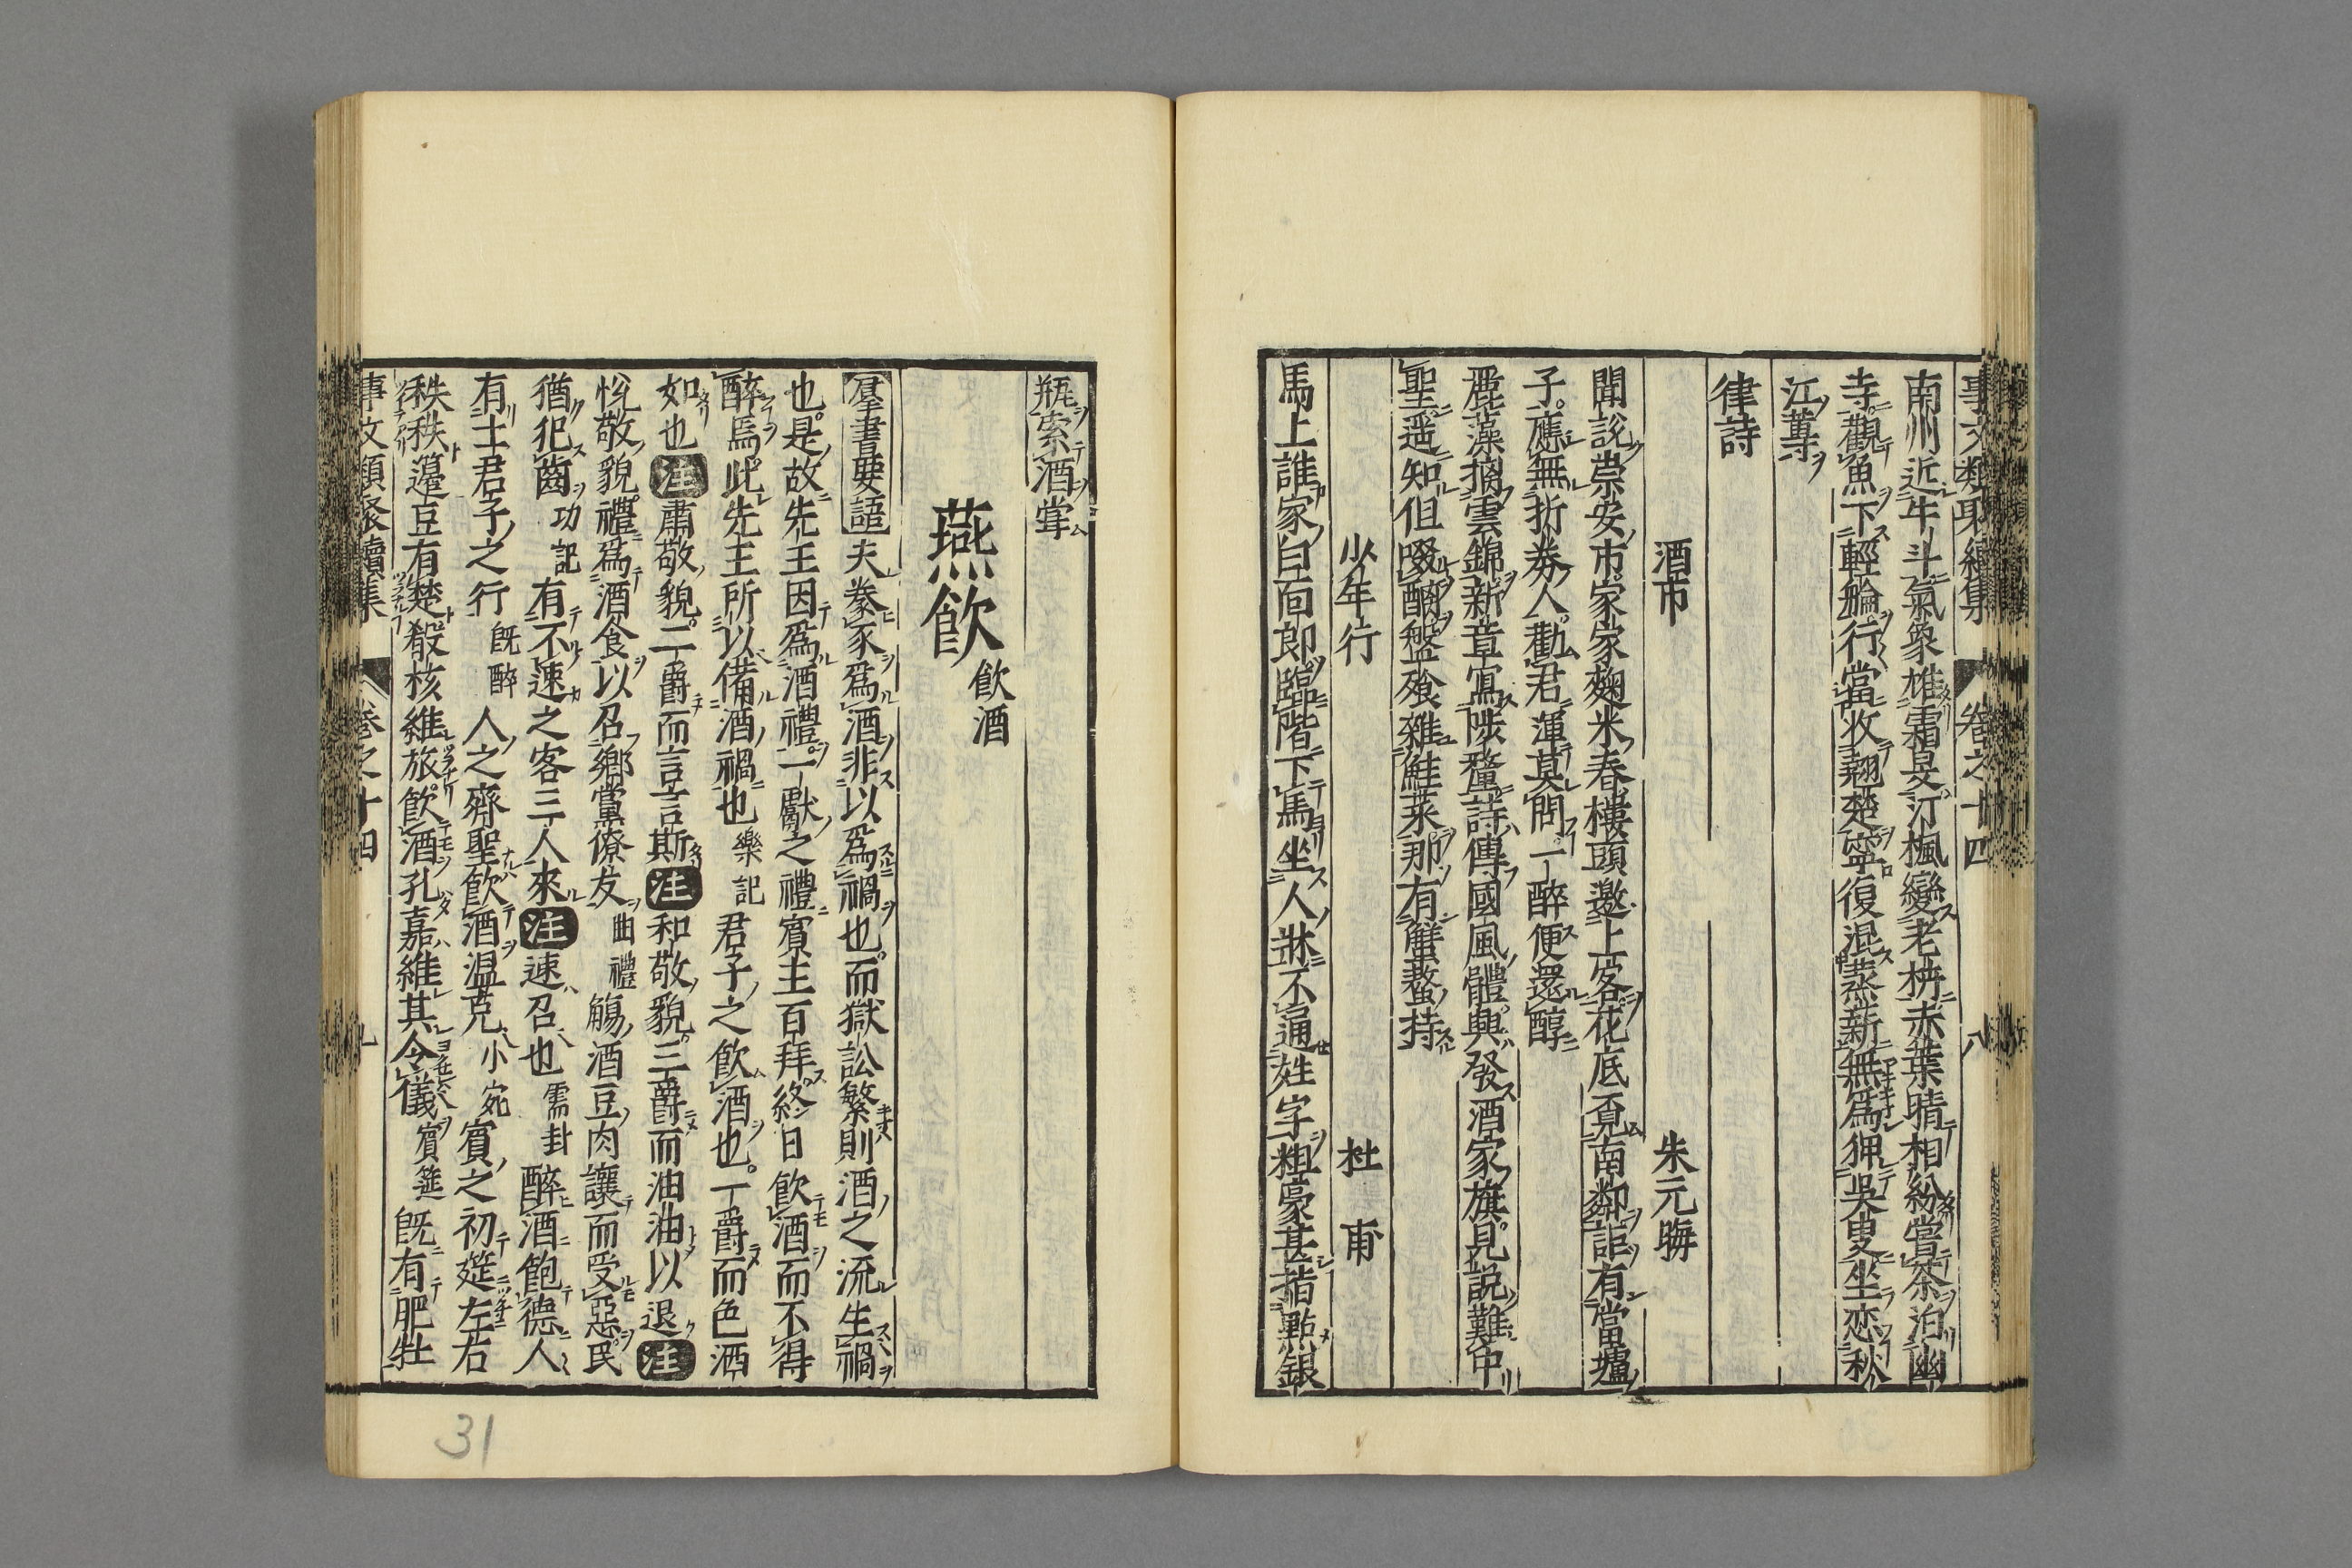 事文類聚續集 卷之十四 八
南州近牛斗氣象雄霜旻汀楓變老枿赤葉晴相紛嘗茶泊幽
寺觀魚下輕艫行當收翹楚寧復混蒸薪無爲狎吳叟坐恋秋
江蓴
律詩
酒市 朱元晦
聞說崇安市家家麴米春樓頭邀上客花底覔南鄰詎有當壚
子應無折劵人勸君渾莫問一醉便還醇
麗藻摛雲錦新章寫陟釐詩傳國風體興發酒家旗見說難中
聖遥知但啜醨盤飧雜鮭菜那有蟹螯持
少年行 杜甫
馬上誰家白面郎臨階下馬坐人牀不通姓字粗豪甚指點銀
瓶索酒甞
燕飲 飲酒
羣書要語 夫豢豕爲酒非以爲禍也而獄訟繁則酒之流生禍
也是故先王因爲酒禮一獻之禮賓主百拜終日飲酒而不得
醉焉此先王所以備酒禍也 樂記 君子之飲酒也一爵而色洒
如也 注 肅敬貌二爵而言言斯 注 和敬貌三爵而油油以退 注
悅敬貌禮爲酒食以召鄉黨僚友 曲禮 觴酒豆肉讓而受惡民
猶犯齒 功記 有不速之客三人來 注 速召也 需卦 醉酒飽德人
有士君子之行 既醉 人之齊聖飲酒温克 小宛 賓之初筵左右
秩秩籩豆有楚殽核維旅飲酒孔嘉維其令儀 賓筵 既有肥牡
事文類聚續集 卷之十四 九
31